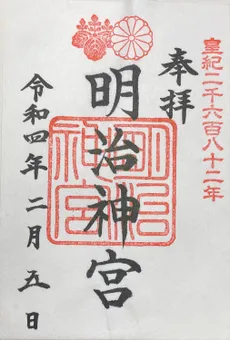 皇紀二千六百八十二年
奉拝
明治神宮
明治神宮
令和四年二月五日